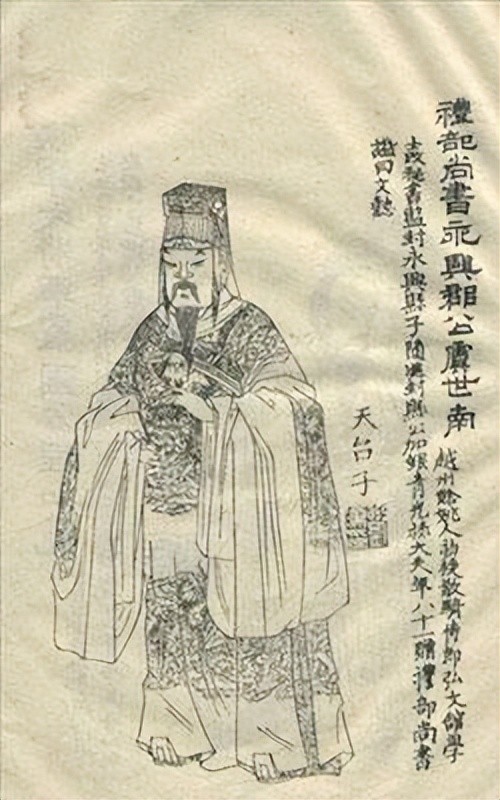 禮部尚書永興郡公虞世南
越州餘姚人初授散騎侍郎弘文館學
士改秘書監封永興縣子進封縣公加銀青光祿大夫年八十一贈禮部尚書
諡曰文懿
天台子